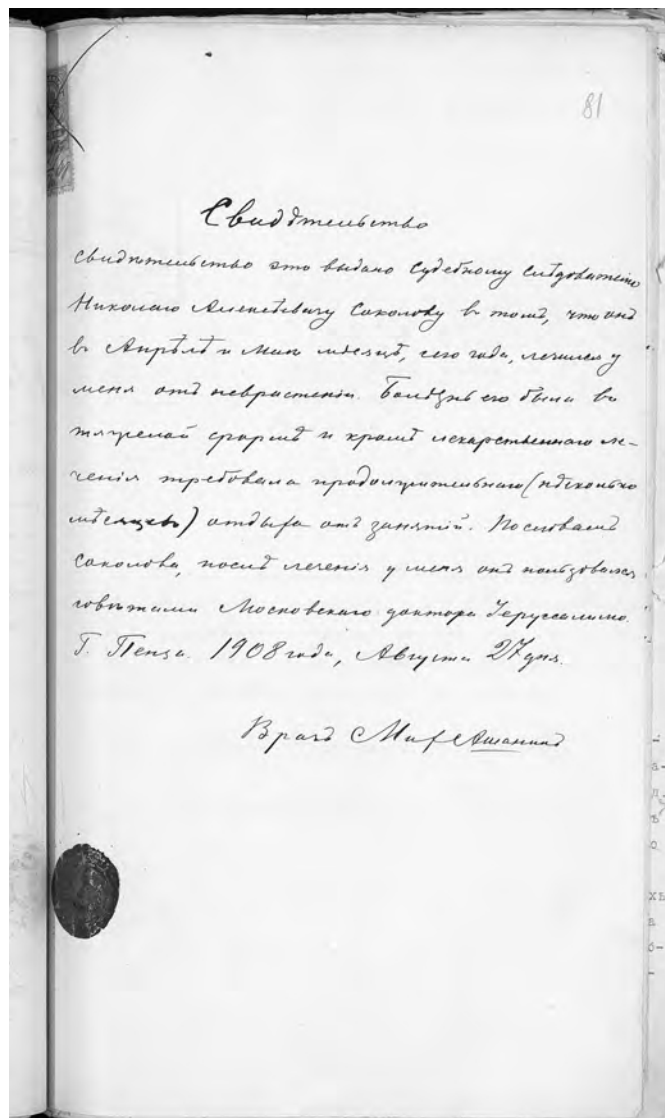 81
Свидѣтельство
Свидѣтельство это выдано Судебному Слѣдователю
Николаю Алексѣевичу Соколову въ томъ, что онъ
въ Апрѣлѣ и Маѣ мѣсяцѣ, сего года, лечился у
меня отъ неврастеніи. Болѣзнь его была въ
тяжелой формѣ и кромѣ лекарственнаго ле-
ченія требовала продолжительнаго (нѣсколько
мѣсяцевъ) отдыха отъ занятій. По словамъ
Соколова, послѣ леченія у меня онъ пользовался
совѣтами Московскаго доктора Іеруссалимс.
Г. Пенза. 1908 года, Августа 27 дня.
Врачъ Мих Ашанинъ